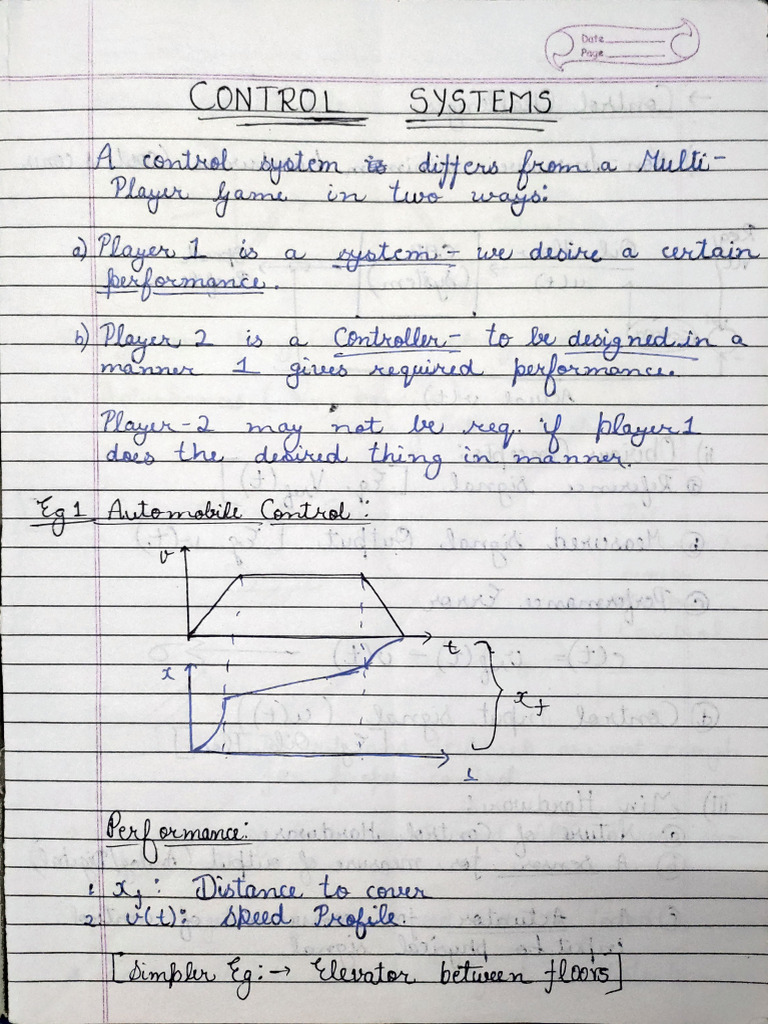 Date
Page
CONTROL SYSTEMS
A control system is differs from a Multi-
Player Game in two ways:
a) Player 1 is a system:- we desire a certain
performance.
b) Player 2 is a Controller- to be designed in a
manner 1 gives required performance.
Player-2 may not be req. if player 1
does the desired thing in manner.
Eg 1 Automobile Control :
v
t
x
xf
t
Performance:
1. xf: Distance to cover
2. v(t): Speed Profile.
[Simpler Eg:→ Elevator between floors]